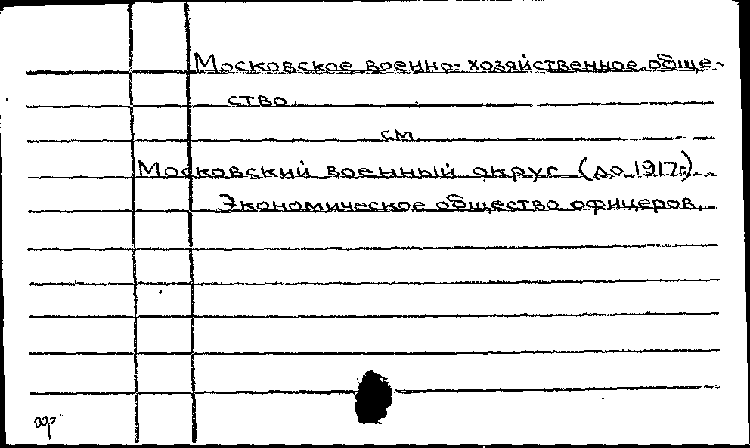 Московское военно-хозяйственное обще-
ство
см.
Московский военный округ (до 1917г.).
Экономическое общество офицеров.